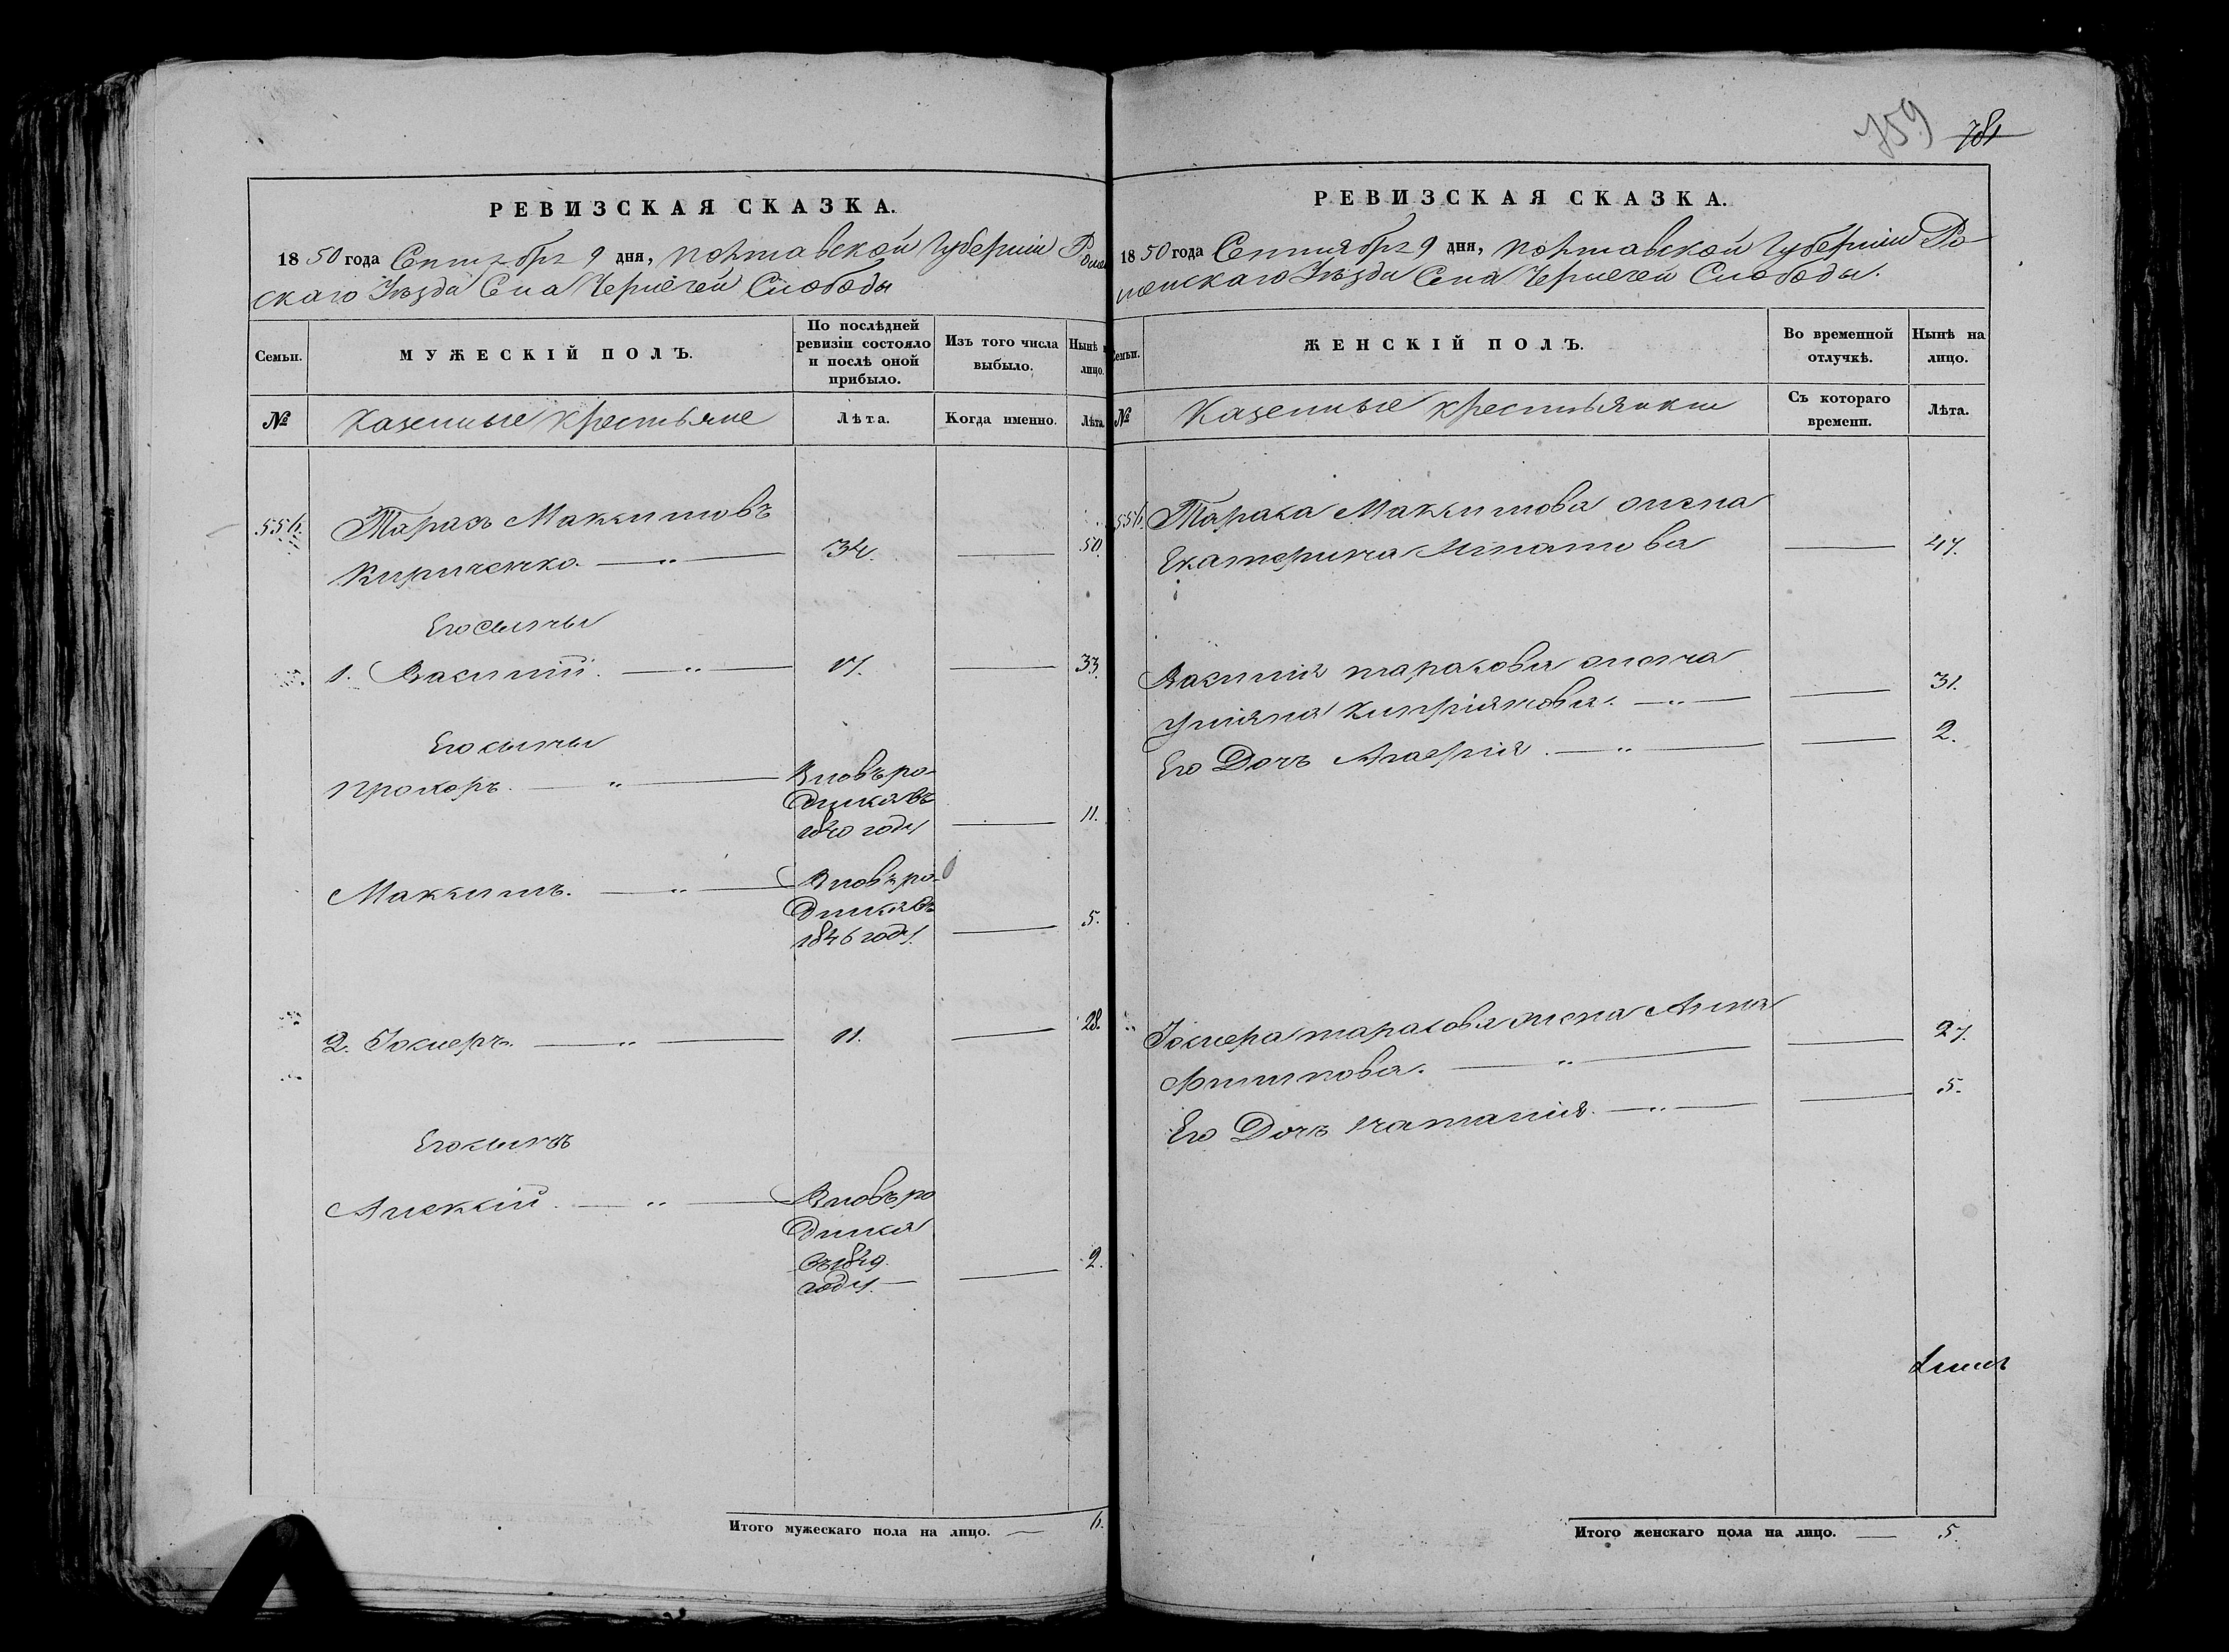 759 781
РЕВИЗСКАЯ СКАЗКА.
1850 года Сентября 9 дня, Полтавской Губернии Ромен
скаго Уѣзда Села Чернечей Слободы
Семьи.
МУЖЕСКІЙ ПОЛЪ.
По послѣдней
ревизіи состояло
и послѣ оной
прибыло.
Изъ того числа
выбыло.
Нынѣ
лицо.
№
Казенные крестьяне
Лѣта.
Когда именно.
Лѣта.
556.
Тарасъ Максимовъ
Кириченко. 34. 50.
Его сыны
1. Василий. 17. 33.
Его сыны
Прохоръ. Вновь ро-
дился въ
1840 году 11.
Максимъ. Вновь ро-
дился въ
1846 году. 5.
2. Госиеръ. 11. 28.
Его сынъ
Алексій. Вновь ро
дился
въ 1849.
году. 2.
Итого мужескаго пола на лицо. 6.
РЕВИЗСКАЯ СКАЗКА.
1850 года Сентября 9 дня, Полтавской Губернии Ро-
менскаго Уѣзда Села Чернечей Слободы.
Семьи.
ЖЕНСКІЙ ПОЛЪ.
Во временной
отлучкѣ.
Нынѣ на
лицо.
№
Казенные крестьянки
Съ котораго
времени.
Лѣта.
556.
Тараса Максимова жена
Екатерина Игнатова 47.
Василия Тарасова жена
Улияна Киприянова. 31.
Его Дочь 2.
Госиера Тарасова жена Анна
27.
Его Дочь Наталия. 5.
Итого женскаго пола на лицо. 5.